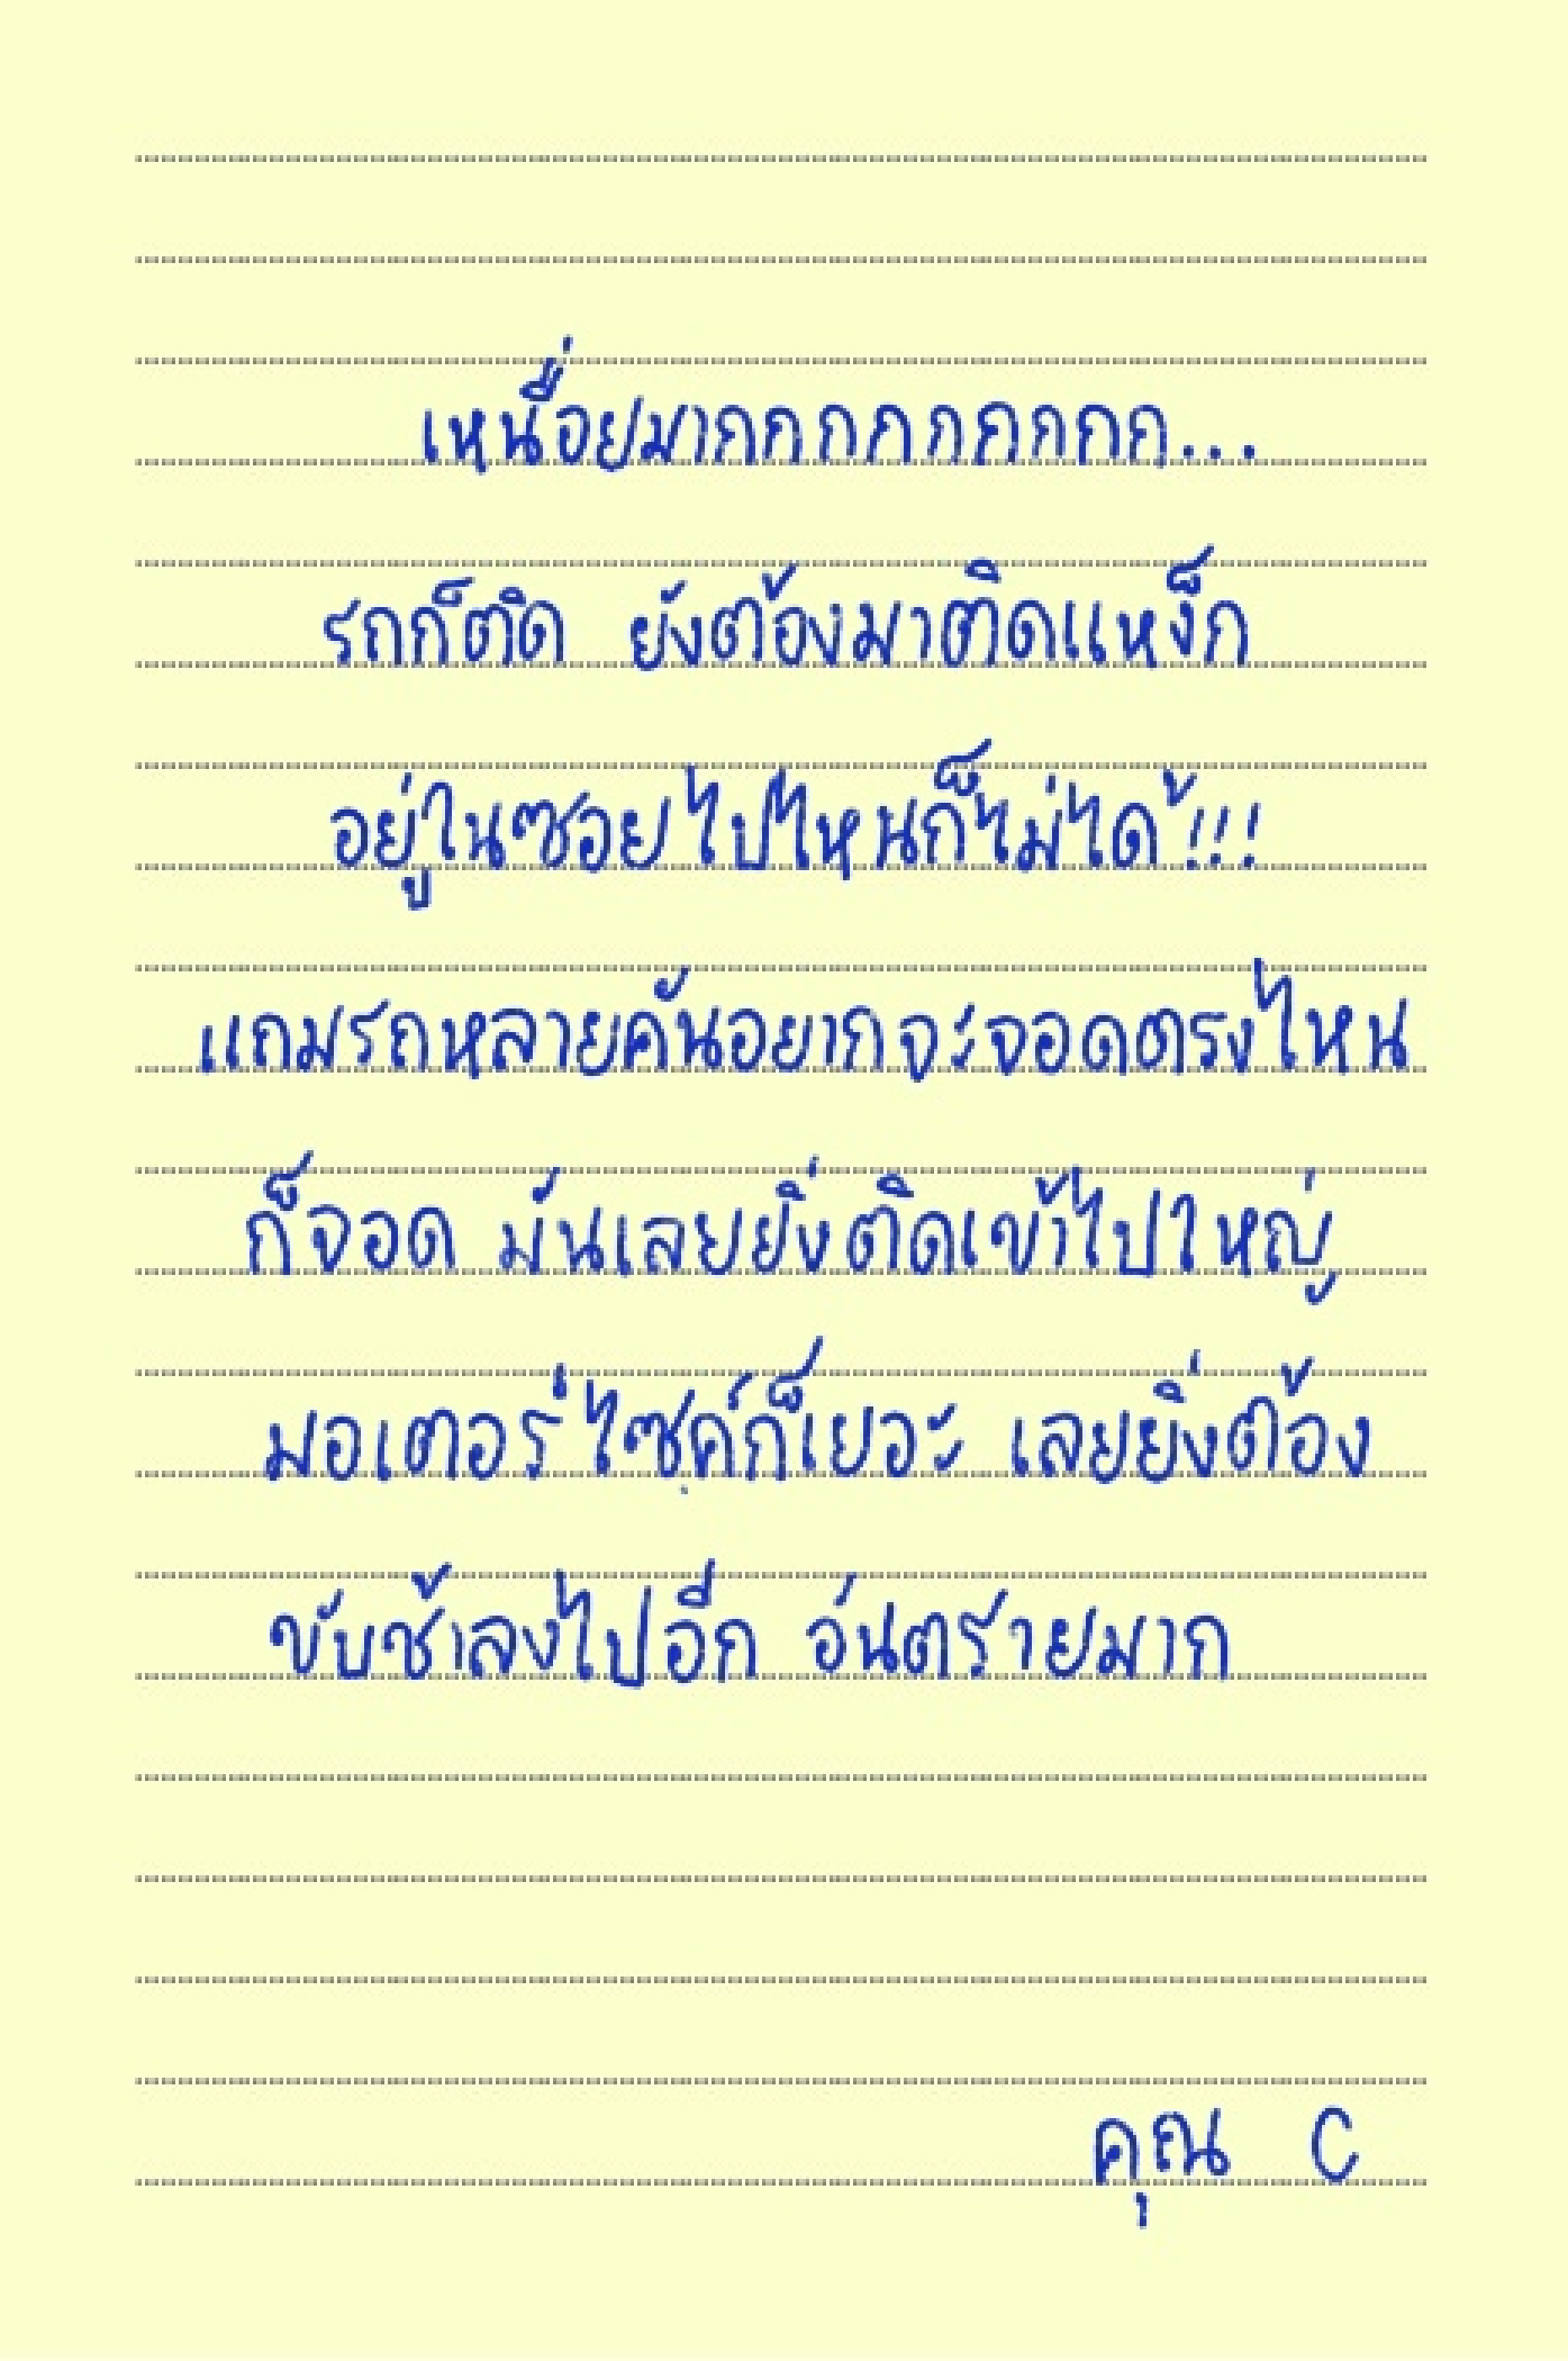 เหนื่อยมากกกกกกกกก...
รถก็ติด ยังต้องมาติดแหง็ก
อยู่ในซอย ไปไหนก็ไม่ได้!!!
แถมรถหลายคันอยากจะจอดตรงไหน
ก็จอด มันเลยยิ่งติดเข้าไปใหญ่
มอเตอร์ไซค์ก็เยอะ เลยยิ่งต้อง
ขับช้าลงไปอีก อันตรายมาก
คุณ C